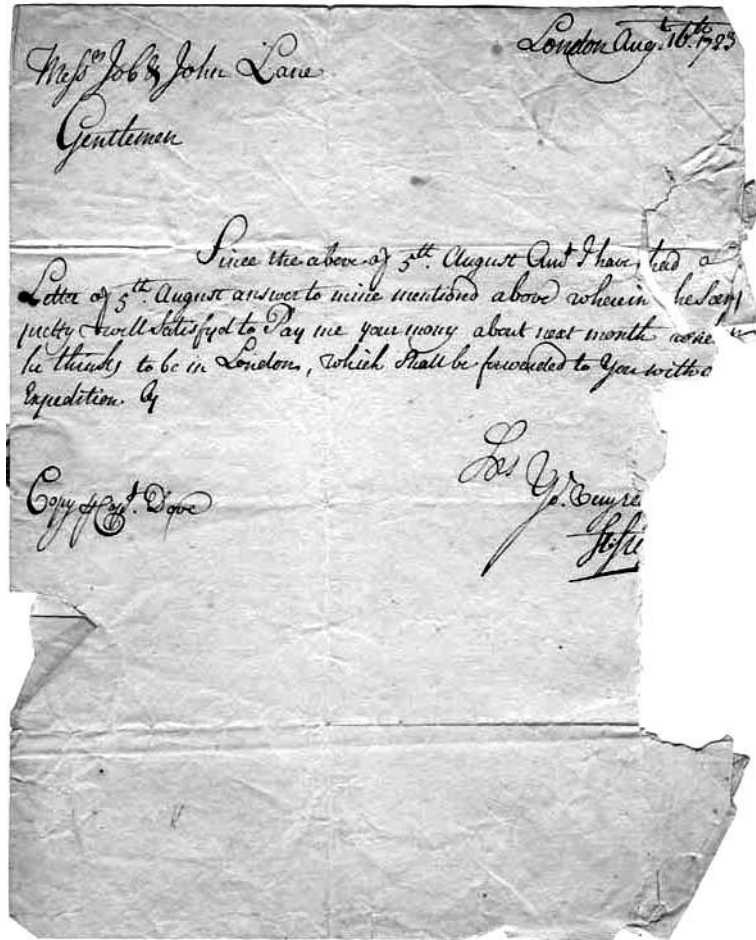 London Augt. 16th. 1723
Messrs Job & John Lane
Gentlemen
Since the above of 5th. August I have had a
Letter of 5th. August answer to mine mentioned above wherein he
pretty well Satisfyd to Pay me your mony about next month
he thinks to be in London, which Shall be forwarded to You
Expedition.
Copy Capt. Dove